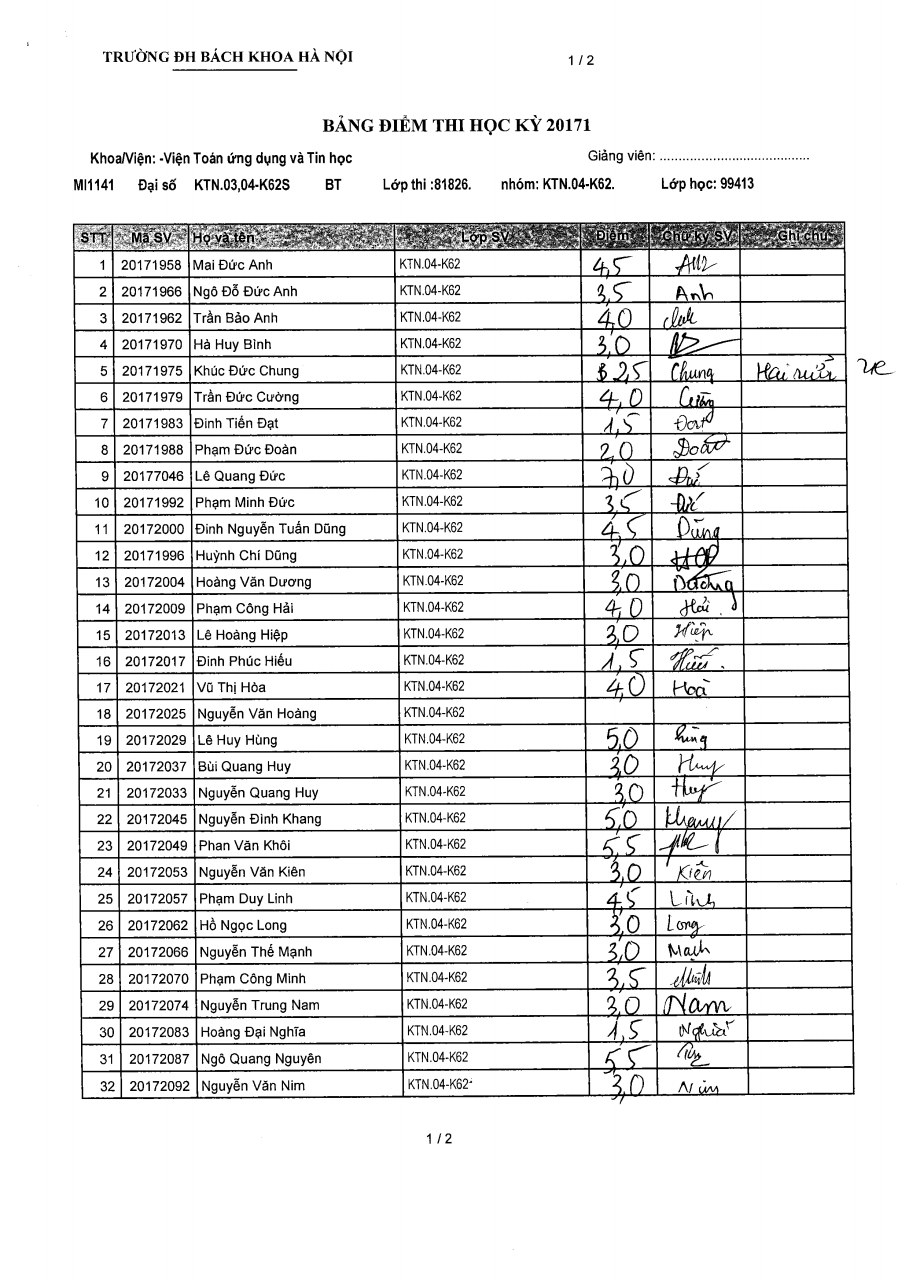 TRƯỜNG ĐH BÁCH KHOA HÀ NỘI 1 / 2
BẢNG ĐIỂM THI HỌC KỲ 20171
Khoa/Viện: -Viện Toán ứng dụng và Tin học Giảng viên: ........................................
MI1141 Đại số KTN.03,04-K62S BT Lớp thi :81826. nhóm: KTN.04-K62. Lớp học: 99413
STT Mã SV Họ và tên Lớp SV Điểm Chữ ký SV Ghi chú
1 20171958 Mai Đức Anh KTN.04-K62 4,5
2 20171966 Ngô Đỗ Đức Anh KTN.04-K62 3,5 Anh
3 20171962 Trần Bảo Anh KTN.04-K62 4,0
4 20171970 Hà Huy Bình KTN.04-K62 3,0
5 20171975 Khúc Đức Chung KTN.04-K62 2,5 Chung Hai rưỡi
6 20171979 Trần Đức Cường KTN.04-K62 4,0 Cường
7 20171983 Đinh Tiến Đạt KTN.04-K62 1,5 Đạt
8 20171988 Phạm Đức Đoàn KTN.04-K62 2,0 Đoàn
9 20177046 Lê Quang Đức KTN.04-K62 7,0 Đức
10 20171992 Phạm Minh Đức KTN.04-K62 3,5 Đức
11 20172000 Đinh Nguyễn Tuấn Dũng KTN.04-K62 4,5 Dũng
12 20171996 Huỳnh Chí Dũng KTN.04-K62 3,0
13 20172004 Hoàng Văn Dương KTN.04-K62 3,0 Dương
14 20172009 Phạm Công Hải KTN.04-K62 4,0 Hải
15 20172013 Lê Hoàng Hiệp KTN.04-K62 3,0 Hiệp
16 20172017 Đinh Phúc Hiếu KTN.04-K62 1,5 Hiếu
17 20172021 Vũ Thị Hòa KTN.04-K62 4,0 Hoà
18 20172025 Nguyễn Văn Hoàng KTN.04-K62
19 20172029 Lê Huy Hùng KTN.04-K62 5,0 hùng
20 20172037 Bùi Quang Huy KTN.04-K62 3,0 Huy
21 20172033 Nguyễn Quang Huy KTN.04-K62 3,0 Huy
22 20172045 Nguyễn Đình Khang KTN.04-K62 5,0 Khang
23 20172049 Phan Văn Khôi KTN.04-K62 5,5
24 20172053 Nguyễn Văn Kiên KTN.04-K62 3,0 Kiên
25 20172057 Phạm Duy Linh KTN.04-K62 4,5 Linh
26 20172062 Hồ Ngọc Long KTN.04-K62 3,0 Long
27 20172066 Nguyễn Thế Mạnh KTN.04-K62 3,0 Mạnh
28 20172070 Phạm Công Minh KTN.04-K62 3,5 Minh
29 20172074 Nguyễn Trung Nam KTN.04-K62 3,0 Nam
30 20172083 Hoàng Đại Nghĩa KTN.04-K62 1,5 Nghĩa
31 20172087 Ngô Quang Nguyên KTN.04-K62 5,5
32 20172092 Nguyễn Văn Nim KTN.04-K62 3,0 Nim
1 / 2